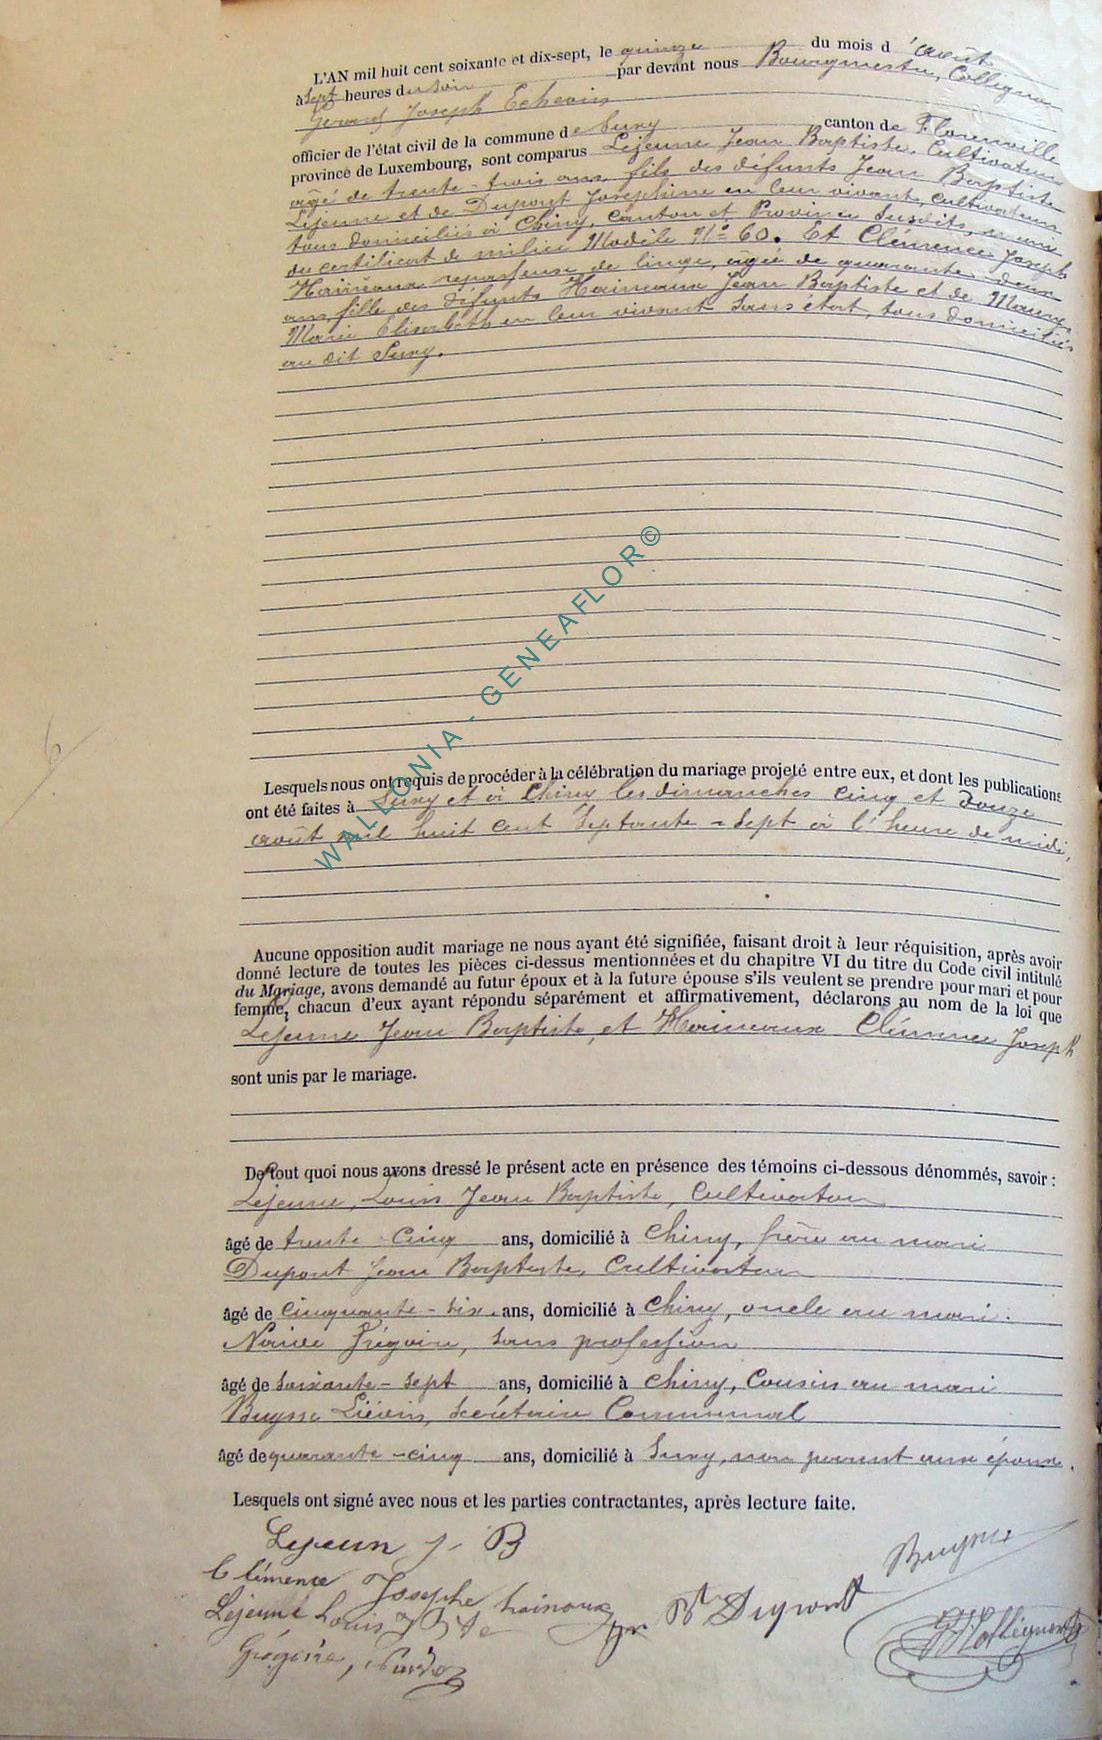 L'AN mil huit cent soixante et dix-sept, le quinze du mois d'août
à sept heures du soir par devant nous Bourgmestre, Collignon
Gérard Joseph Echevin
officier de l'état civil de la commune de Suxy canton de Florenville
province de Luxembourg, sont comparus Lejeune Jean Baptiste, Cultivateur
agé de trente-trois ans, fils des défunts Jean Baptiste
Lejeune et de Dupont Josephine en leur vivant, cultivateurs
tous domiciliés à Chiny, canton et Province susdits, muni
du certificat de milice Modèle N° 60. Et Clémence Joseph
Haineaux repasseuse de linge, agée de quarante-deux
ans fille des défunts Haineaux Jean Baptiste et de
Marie Elisabeth en leur vivant sans état, tous domiciliés
au dit Suxy.
Lesquels nous ont requis de procéder à la célébration du mariage projeté entre eux, et dont les publications
ont été faites à Suxy et à Chiny les dimanches cinq et douze
août mil huit cent septante-sept à l'heure de midi,
Aucune opposition audit mariage ne nous ayant été signifiée, faisant droit à leur réquisition, après avoir
donné lecture de toutes les pièces ci-dessus mentionnées et du chapitre VI du titre du Code civil intitulé
du Mariage, avons demandé au futur époux et à la future épouse s'ils veulent se prendre pour mari et pour
femme, chacun d'eux ayant répondu séparément et affirmativement, déclarons au nom de la loi que
Lejeune Jean Baptiste, et Haineaux Clémence Joseph
sont unis par le mariage.
De tout quoi nous avons dressé le présent acte en présence des témoins ci-dessous dénommés, savoir :
Lejeune, Louis Jean Baptiste, Cultivateur
âgé de trente-cinq ans, domicilié à Chiny, frère au mari
Dupont Jean Baptiste, Cultivateur
âgé de cinquante-six ans, domicilié à Chiny, oncle au mari.
Grégoire, sans profession
âgé de soixante-sept ans, domicilié à Chiny, Cousin au mari
Buysse Liévin, secrétaire Communal
âgé de quarante-cinq ans, domicilié à Suxy, non parent aux époux.
Lesquels ont signé avec nous et les parties contractantes, après lecture faite.
Lejeun J-B
Buysse
Clémence Josephe hainaux
Lejeune Louis J Bte
Bte Dupont
G J Collignon
Grégoire,
6
WALLONIA - GENEAFLOR©